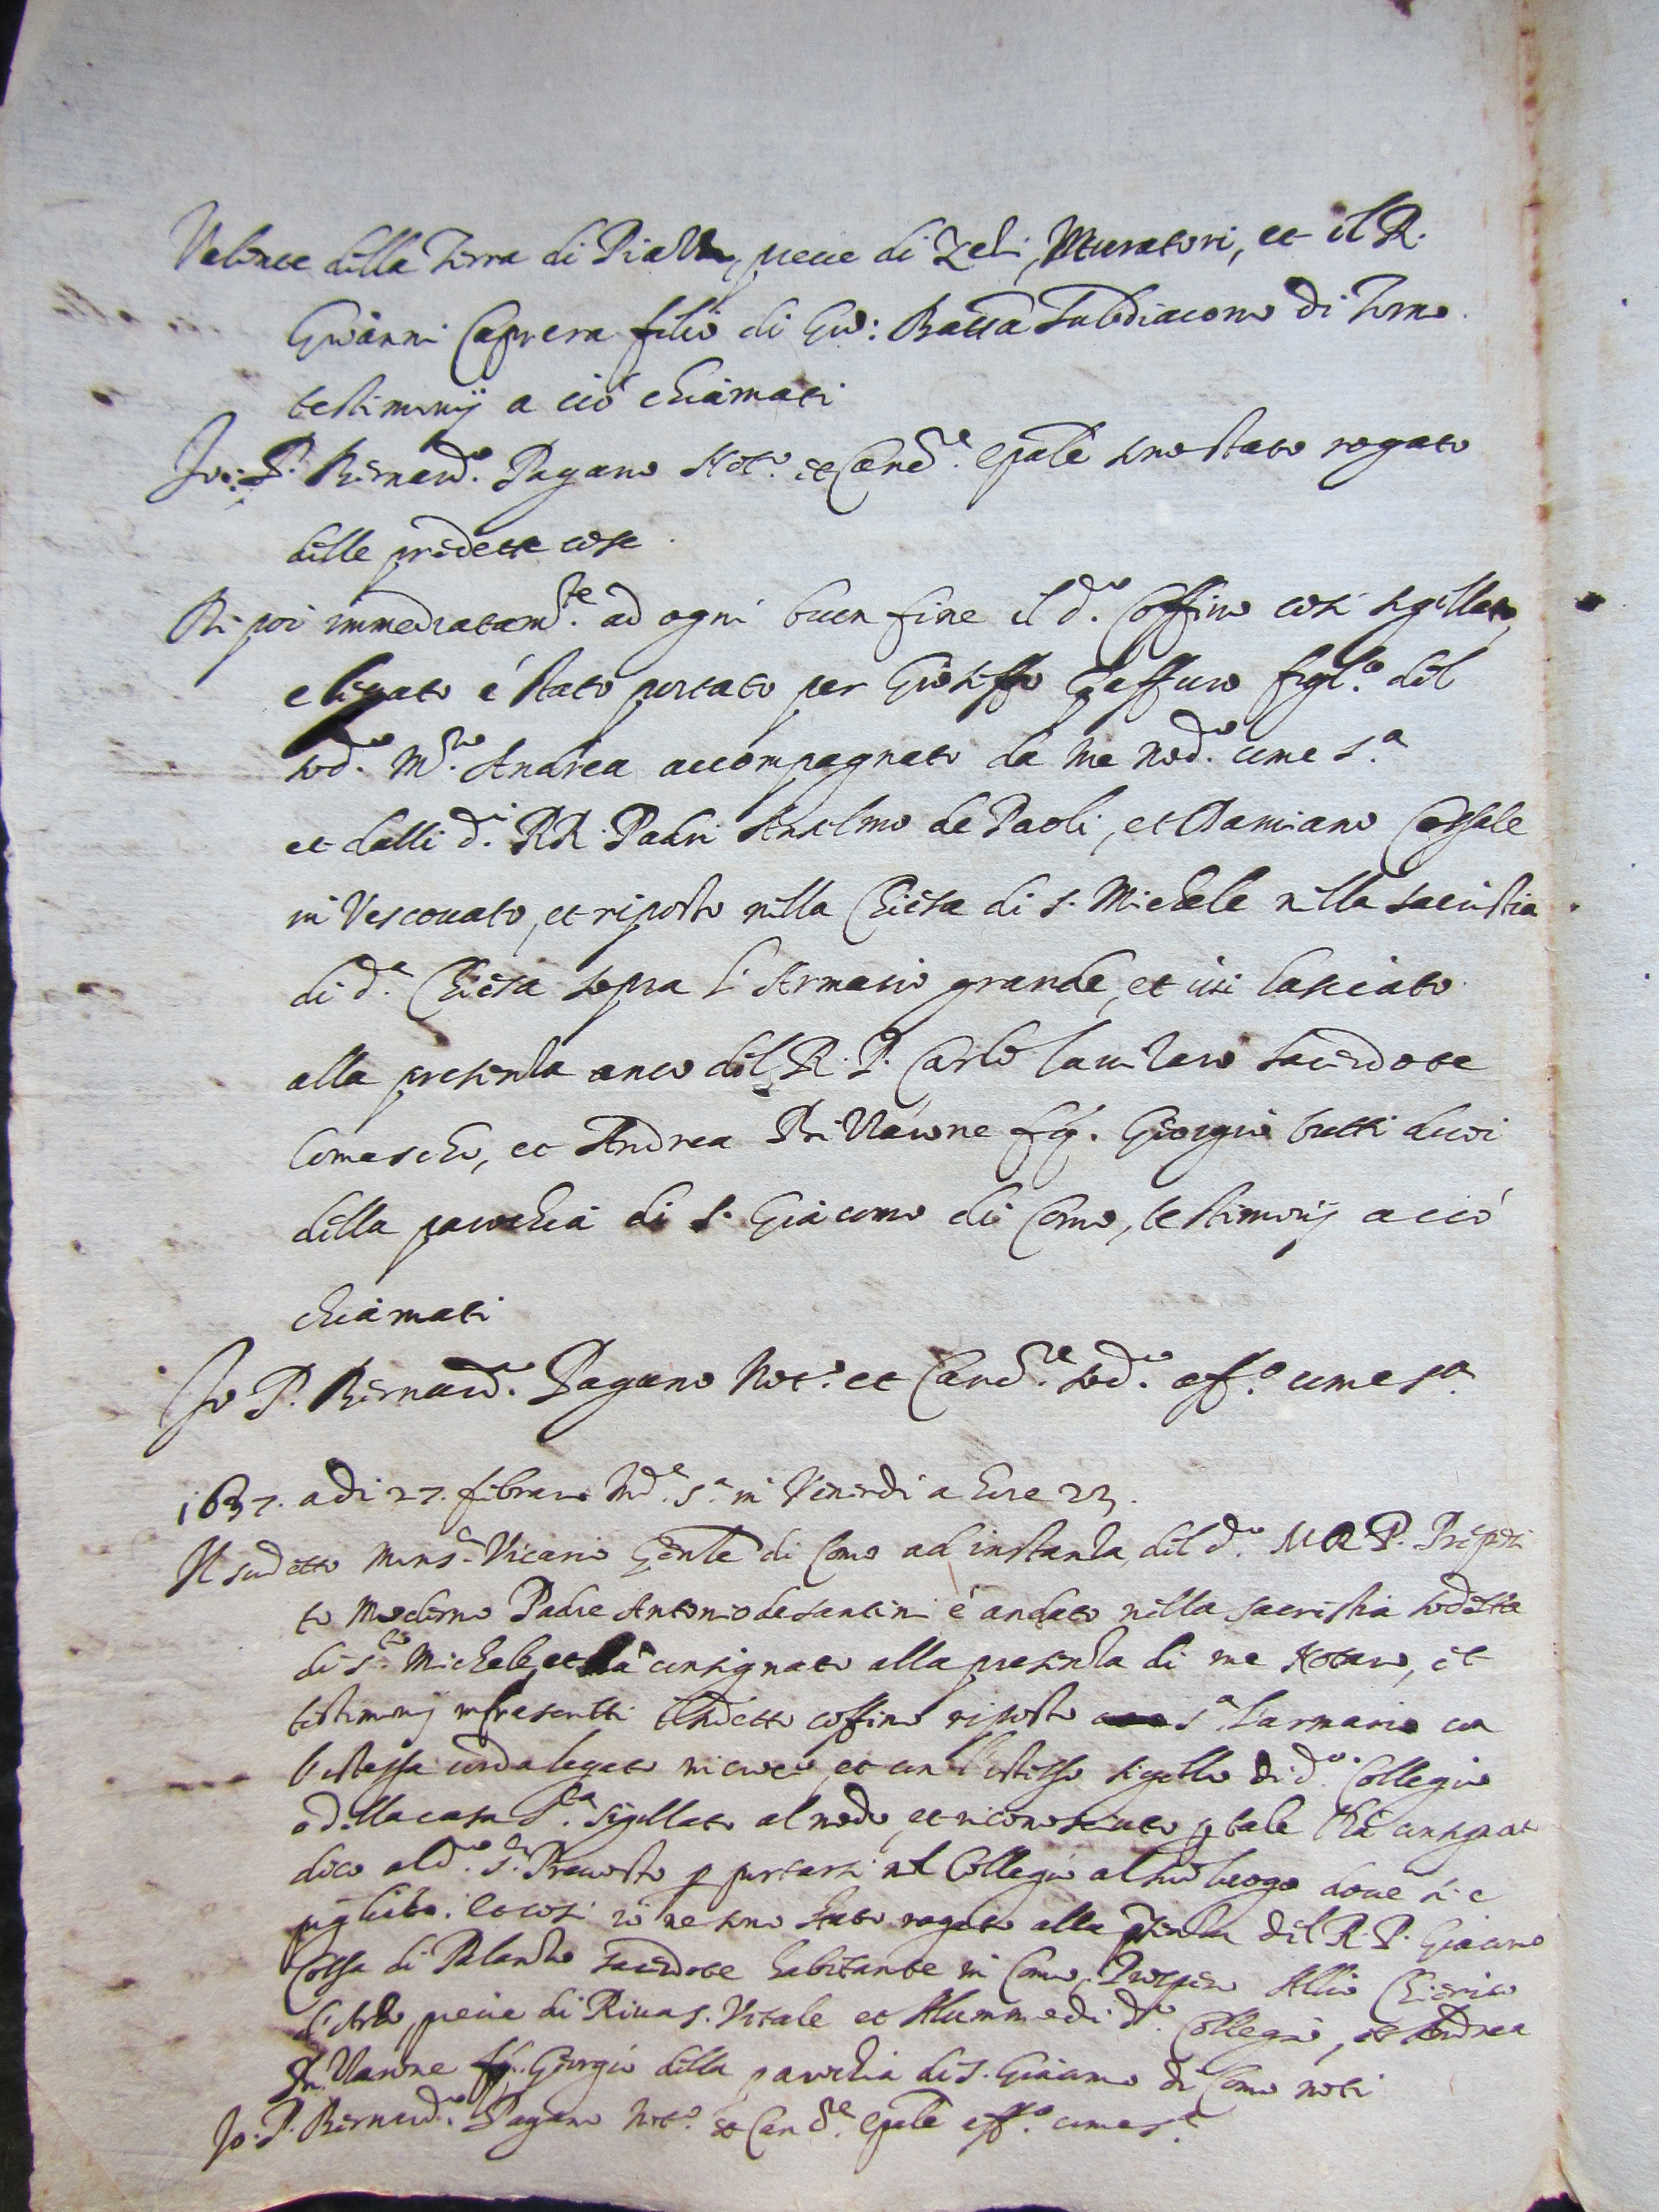 Valente della Terra di Piazza, pieve di Zeli, Muratori, et il R.
Giovanni Caprera filio di Gio: Batta Subdiacono di Torno
testimonij a ciò chiamati
Io: P. Bernardo. Pagano Not.º et Canc.re epale sono stato rogato
delle predette cose
Di poi immediatam.te ad ogni buon fine il d.º Coffino così sigillato,
e ligato è stato portato per Gioseffo Gaffuro figl.º del
sod.º M.ro Andrea accompagnato da me nod.º come s.ª
et dalli d.i RR. Padri Anselmo de Paoli, et Damiano Cassale
in Vescovato, et riposto nella Chiesa di S. Michele nella sacristia
di d.ª Chiesa sopra l'Armario grande, et ivi lasciato
alla presenza anco del R. P. Carlo sacerdote
Comascho, et Andrea fig. Giorgio tutti duoi
della parochia di S. Giacomo di Como, testimonij a ciò
chiamati
Io P. Bernard.º Pagano Not.º et Canc.re sod.º aff.º come s.ª
1637. adi 27. febraro Ind.e s.ª in Venerdì a hore 23.
Il sudetto Mons.r Vicario Genle di Como ad instanza del d.º M R P. Preposi
to moderno Padre Antonio de santini è andato nella sacristia sodetta
di S.to Michele, et ha consignato alla presenza di me Notaro, et
testimonij infrascritti il sudetto coffino riposto s.ª l'armario con
l'istessa corda legato in croce, et con l'istesso sigillo di d.º Collegio
o della casa s.ta sigillato al nodo, et riconosciuto p tale l'ha consignat
dico al d.º S.r Prevosto p portarsi nel Collegio al suo luogo dove si è
pigliato. et così io ne sono stato rogato alla pñza del R. P. Giacomo
Cossa di Palanzo sacerdote habitante in Como, Prospero Allio Chierico
d'Arzo, pieve di Riva S. Vitale et Alumno di d.º Collegio, et Andrea
fig. Giorgio della parochia di S. Giacomo di Como noti
Io: P. Bernard.º Pagano Not.º et Canc.re epale aff.º come s.ª